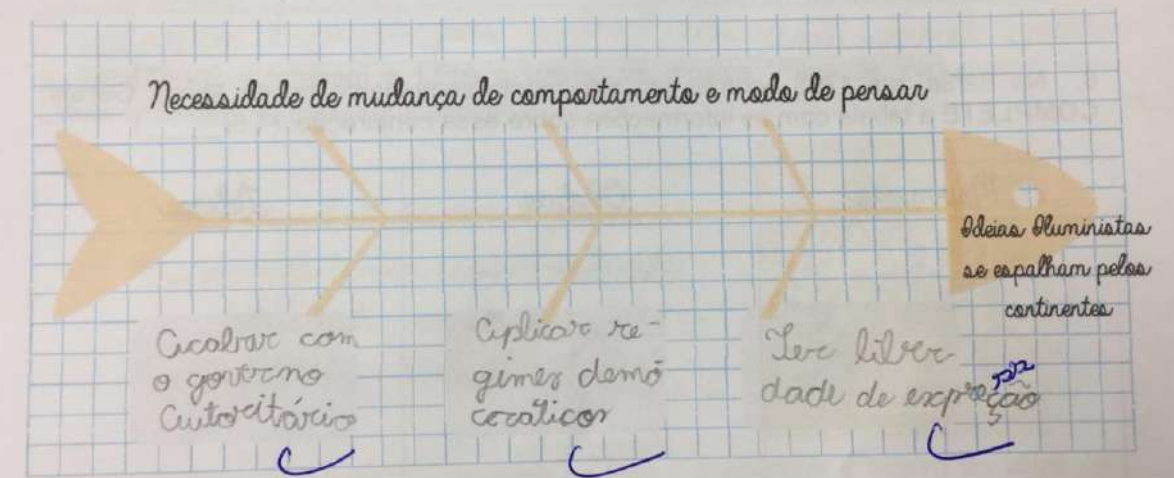 Necessidade de mudança de comportamento e modo de pensar
Ideias Iluministas
se espalham pelos
continentes
Acabar com
o governo
Autoritário
Aplicar re-
gimes demo
cráticos
Ter liber-
dade de expreção
ss